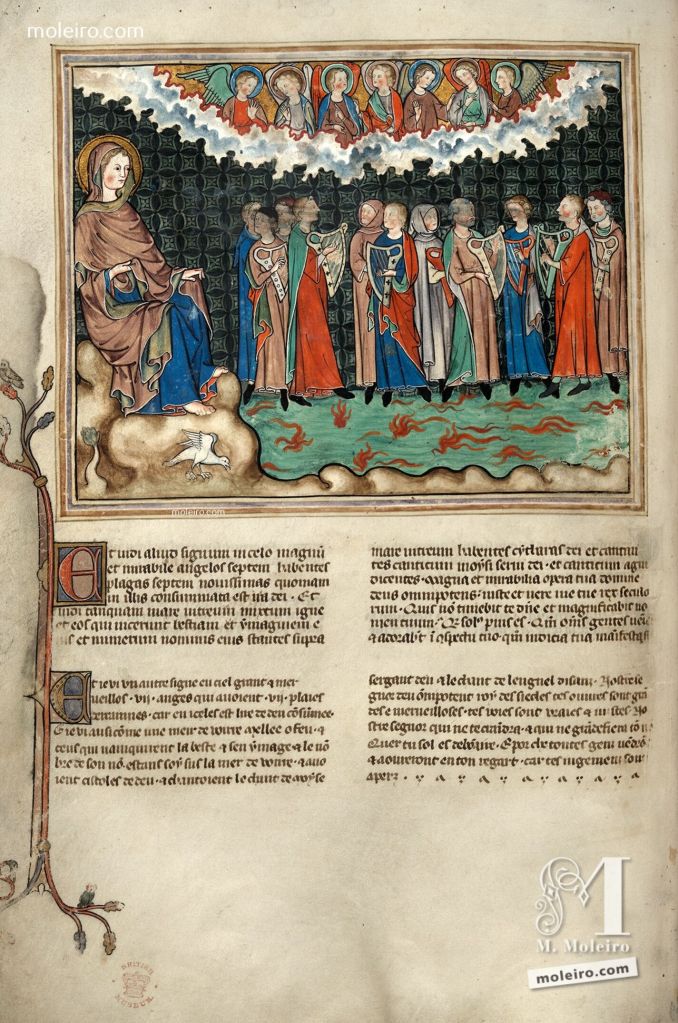 moleiro.com
moleiro.com
Et uidi aliud signum in celo magnū
et mirabile angelos septem habentes
plagas septem nouissimas quoniam
in illis consummata est ira dei · Et
uidi tanquam mare uitreum mixtum igne
et eos qui uicerunt bestiam et ymaginem e
ius et numerum nominis eius stantes supra
mare uitreum habentes cytharas dei et cantan
tes canticum moysi serui dei · et canticum agni
dicentes · Magna et mirabilia opera tua domine
deus omnipotens · iuste et uere uie tue rex seculo
rum · Quis nō timebit te dn̄e et magnificabit no
men tuum · Qr̄ solꝰ pius es · Qm̄ om̄s gentes uēi
& adorabt̄ ī cōspectu tuo · qm̄ iudicia tua manifesta st̄
Et ie vi vn autre signe en ciel grant & mer
ueillos · vij · anges qui auoient · vij · plaies
derrainnes · car en iceles est lire de deu cōsūmee ·
Et ie vi ausi cōme une mer de voirre mellee o feu · &
ceus qui vainquirent la beste & sen ymage & le nō
bre de son nō · estans soy sus la mer de voirre · & auo
ient citoles de deu · & chantoient le chant de moyse
sergant deu · & le chant de lengnel disant · Nostre se
gner deu ōmpotent roy des siecles tes ouures sont grā
des e merueilloses · tes voies sont vraies & iustes No
stre segnor qui ne te crandra · & qui ne grandefiera tō n̄
Quer tu sol es debōaire · E por che toutes gens uendrō
& aoureront en ton regart · car tes iugemens sont
apert ·
BRITISH
MUSEUM
M
M. Moleiro
moleiro.com